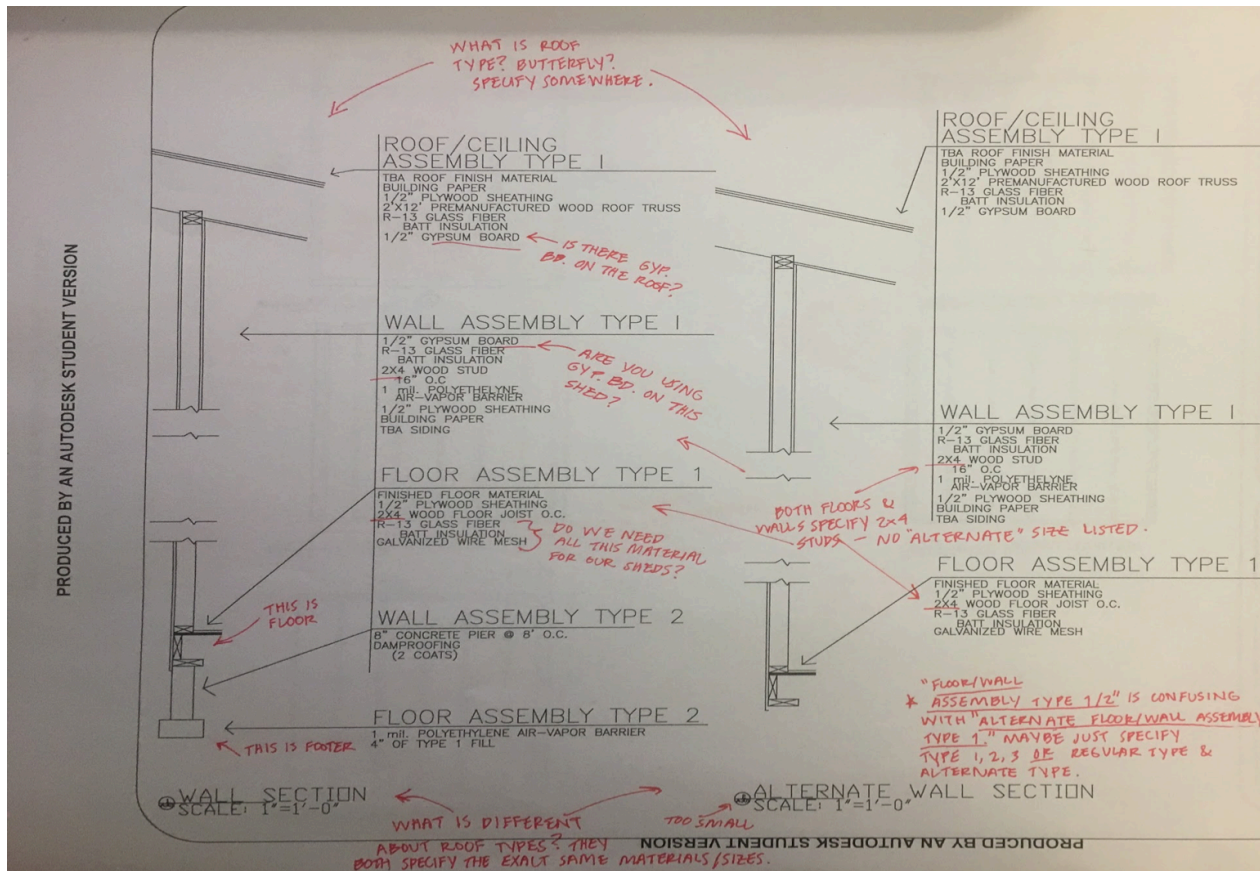 WHAT IS ROOF
TYPE? BUTTERFLY?
SPECIFY SOMEWHERE.
PRODUCED BY AN AUTODESK STUDENT VERSION
ROOF/CEILING
ASSEMBLY TYPE I
TBA ROOF FINISH MATERIAL
BUILDING PAPER
1/2" PLYWOOD SHEATHING
2'X12' PREMANUFACTURED WOOD ROOF TRUSS
R-13 GLASS FIBER
BATT INSULATION
1/2" GYPSUM BOARD
IS THERE GYP.
BD. ON THE ROOF?
WALL ASSEMBLY TYPE I
1/2" GYPSUM BOARD
R-13 GLASS FIBER
BATT INSULATION
2X4 WOOD STUD
16" O.C
1 mil. POLYETHELYNE
AIR-VAPOR BARRIER
1/2" PLYWOOD SHEATHING
BUILDING PAPER
TBA SIDING
ARE YOU USING
GYP. BD. ON THIS
SHED?
FLOOR ASSEMBLY TYPE 1
FINISHED FLOOR MATERIAL
1/2" PLYWOOD SHEATHING
2X4 WOOD FLOOR JOIST O.C.
R-13 GLASS FIBER
BATT INSULATION
GALVANIZED WIRE MESH
DO WE NEED
ALL THIS MATERIAL
FOR OUR SHEDS?
THIS IS
FLOOR
WALL ASSEMBLY TYPE 2
8" CONCRETE PIER @ 8' O.C.
DAMPROOFING
(2 COATS)
FLOOR ASSEMBLY TYPE 2
1 mil. POLYETHYLENE AIR-VAPOR BARRIER
4" OF TYPE 1 FILL
THIS IS FOOTER
WALL SECTION
SCALE: 1"=1'-0"
ROOF/CEILING
ASSEMBLY TYPE I
TBA ROOF FINISH MATERIAL
BUILDING PAPER
1/2" PLYWOOD SHEATHING
2'X12' PREMANUFACTURED WOOD ROOF TRUSS
R-13 GLASS FIBER
BATT INSULATION
1/2" GYPSUM BOARD
WALL ASSEMBLY TYPE I
1/2" GYPSUM BOARD
R-13 GLASS FIBER
BATT INSULATION
2X4 WOOD STUD
16" O.C
1 mil. POLYETHELYNE
AIR-VAPOR BARRIER
1/2" PLYWOOD SHEATHING
BUILDING PAPER
TBA SIDING
BOTH FLOORS &
WALLS SPECIFY 2x4
STUDS — NO "ALTERNATE" SIZE LISTED.
FLOOR ASSEMBLY TYPE 1
FINISHED FLOOR MATERIAL
1/2" PLYWOOD SHEATHING
2X4 WOOD FLOOR JOIST O.C.
R-13 GLASS FIBER
BATT INSULATION
GALVANIZED WIRE MESH
"FLOOR/WALL
* ASSEMBLY TYPE 1/2" IS CONFUSING
WITH "ALTERNATE FLOOR/WALL ASSEMBLY
TYPE 1." MAYBE JUST SPECIFY
TYPE 1, 2, 3 OR REGULAR TYPE &
ALTERNATE TYPE.
ALTERNATE WALL SECTION
SCALE: 1"=1'-0"
TOO SMALL
WHAT IS DIFFERENT
ABOUT ROOF TYPES? THEY
BOTH SPECIFY THE EXACT SAME MATERIALS/SIZES.
PRODUCED BY AN AUTODESK STUDENT VERSION